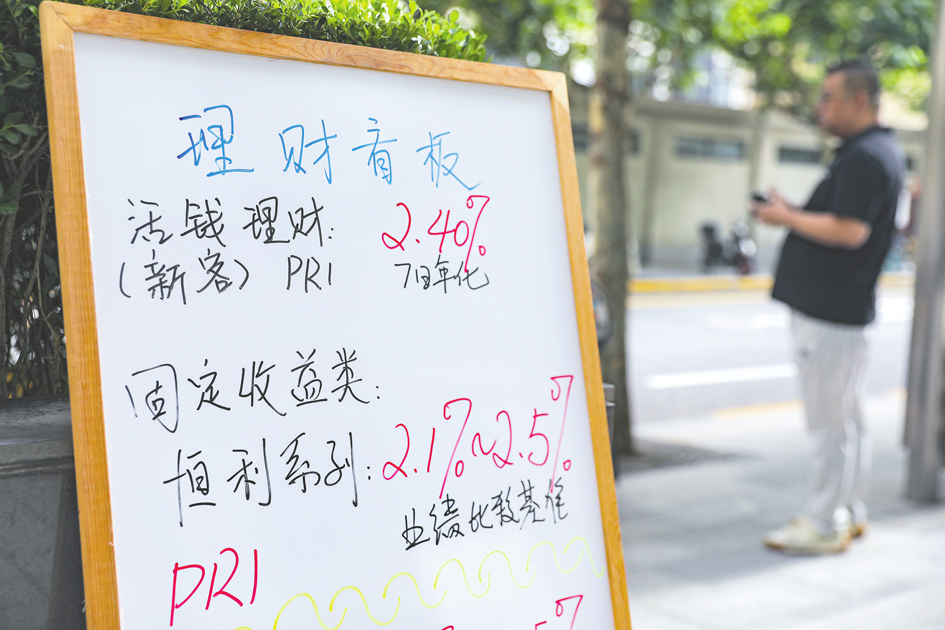 理财看板
活钱理财: 2.40%
(新客) PR1 7日年化
固定收益类:
恒利系列: 2.1%~2.5%
业绩比较基准
PR1